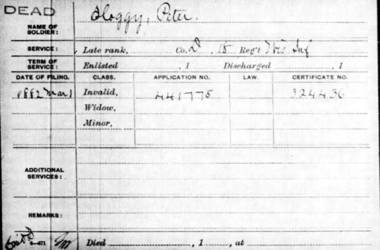 DEAD
Hoggy, Peter.
NAME OF SOLDIER:
SERVICE: Late rank, Co. D, 15 Reg't Wis Inf
TERM OF SERVICE: Enlisted , 1 Discharged , 1
DATE OF FILING. CLASS. APPLICATION NO. LAW. CERTIFICATE NO.
1882 Mar 1 Invalid, 441775 324436
Widow,
Minor,
ADDITIONAL SERVICES:
REMARKS:
Died , 1 , at